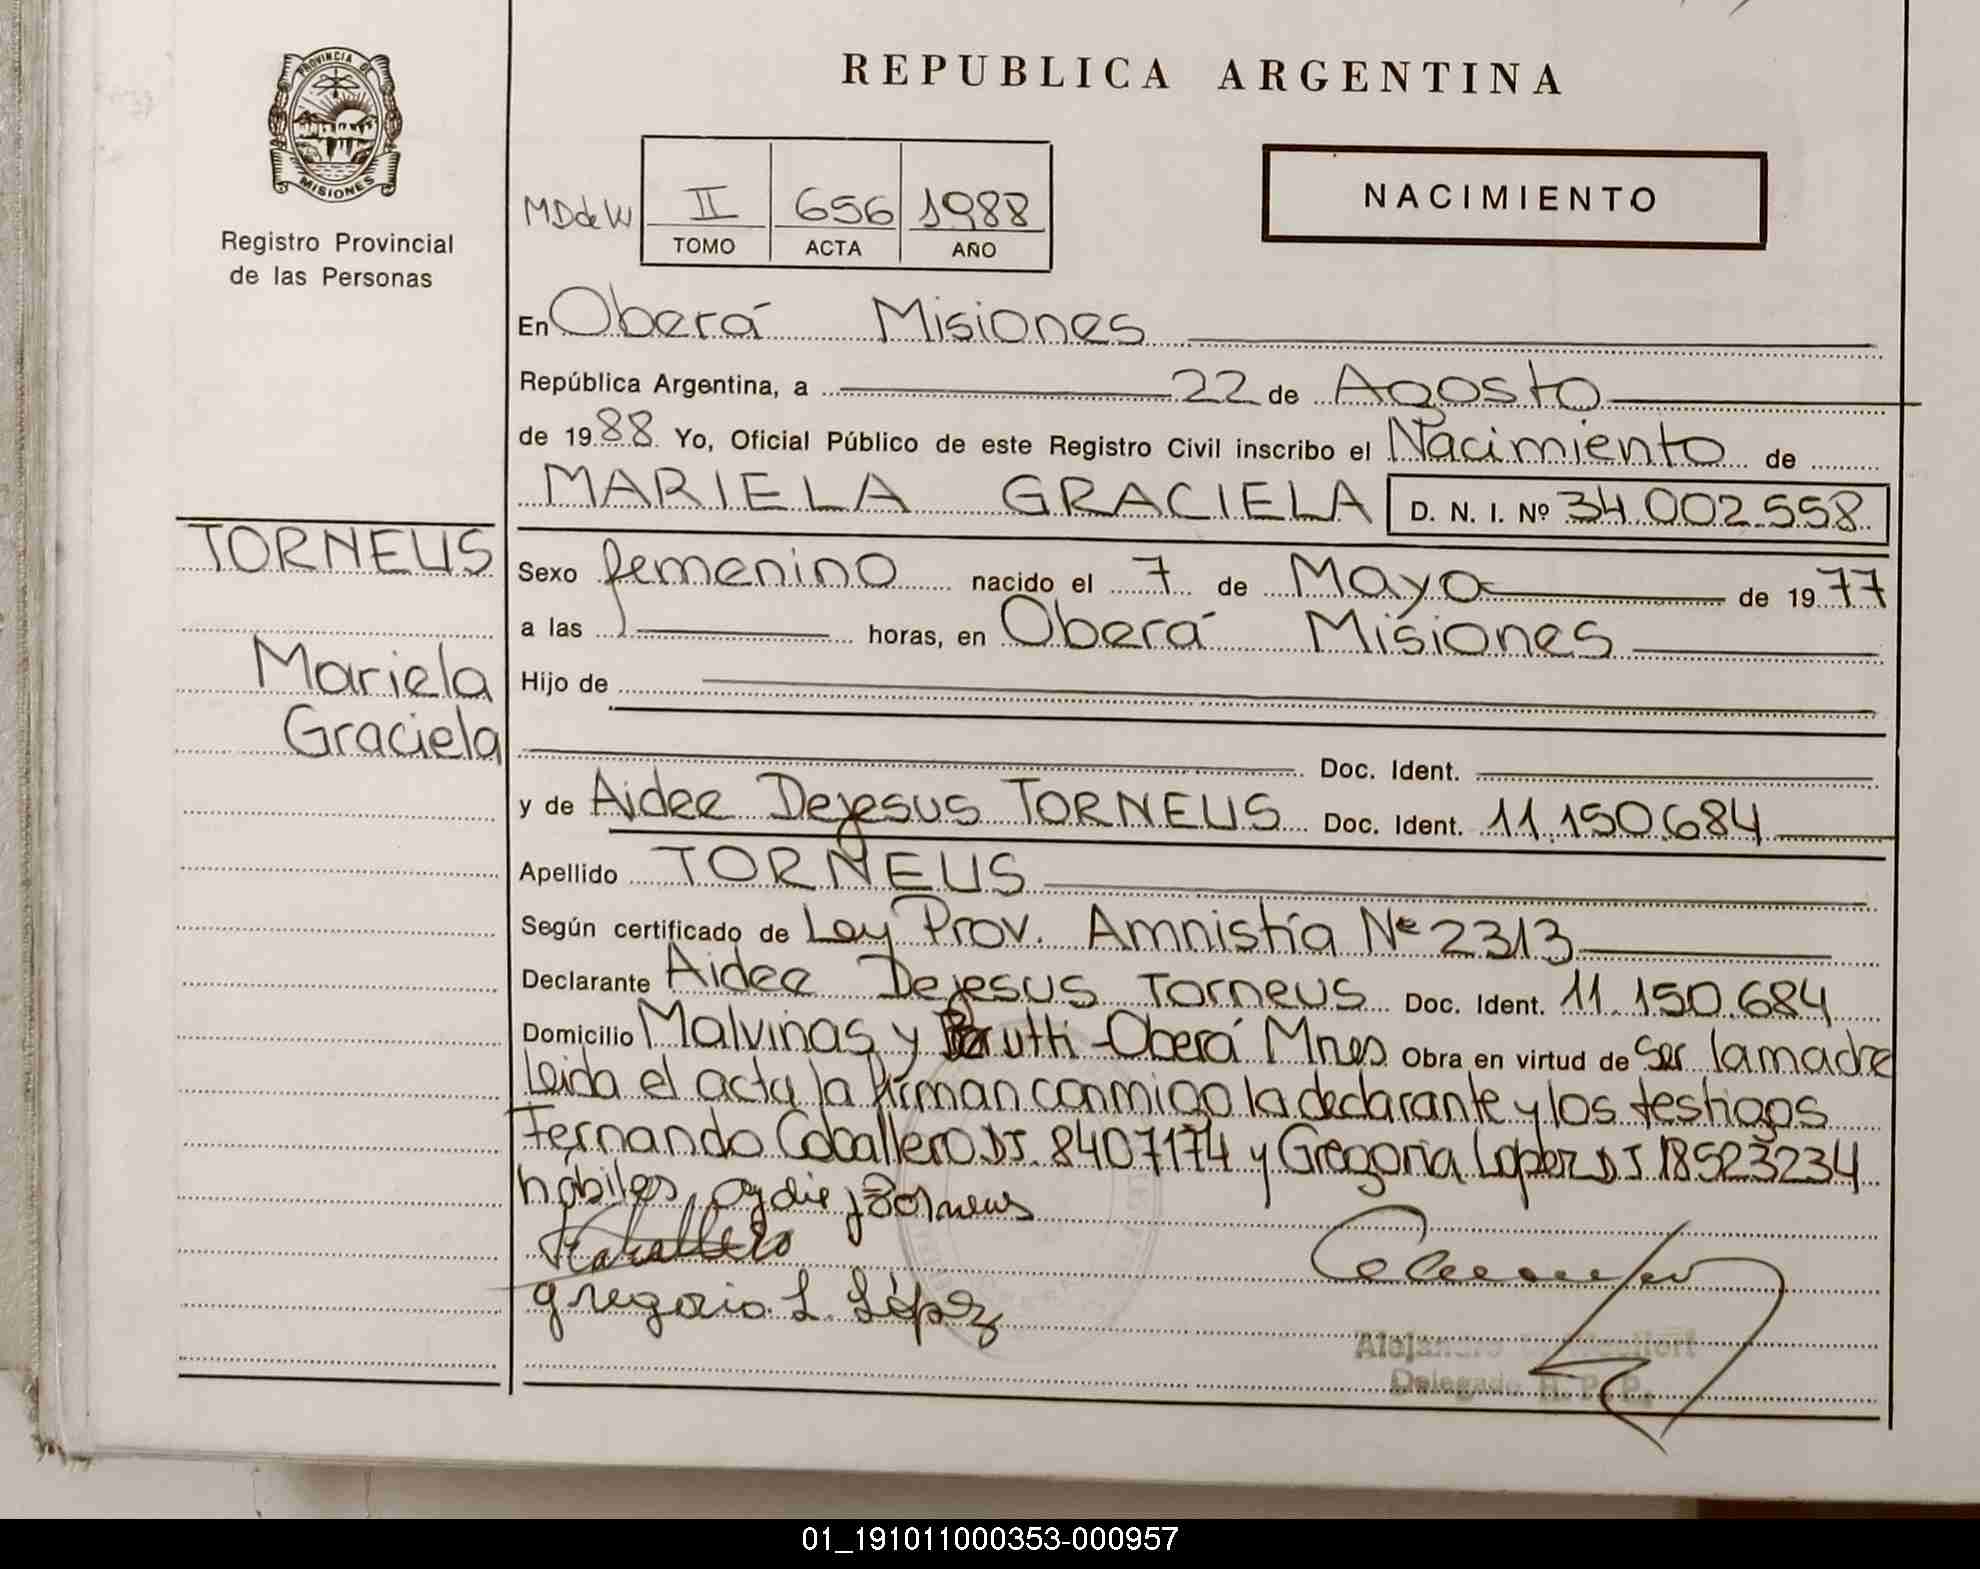 PROVINCIA DE
MISIONES
Registro Provincial
de las Personas
REPUBLICA ARGENTINA
MD de W
II 656 1988
TOMO ACTA AÑO
NACIMIENTO
En Oberá Misiones
República Argentina, a 22 de Agosto
de 1988 Yo, Oficial Público de este Registro Civil inscribo el Nacimiento de
MARIELA GRACIELA D. N. I. Nº 34.002.558
TORNEUS
Mariela
Graciela
Sexo femenino nacido el 7 de Mayo de 1977
a las horas, en Oberá Misiones
Hijo de
Doc. Ident.
y de Aidee Dejesus TORNEUS Doc. Ident. 11.150.684
Apellido TORNEUS
Según certificado de Ley Prov. Amnistía Nº 2313
Declarante Aidee Dejesus Torneus Doc. Ident. 11.150.684
Domicilio Malvinas y Berutti - Oberá Mnes Obra en virtud de Ser la madre
Leida el acta la firman conmigo la declarante y los testigos
Fernando Caballero DJ. 8407174 y Gregoria Lopez DJ 18523234
hábiles,
F Caballero
gregoria L. López
Delegado R. P. P.
01_191011000353-000957